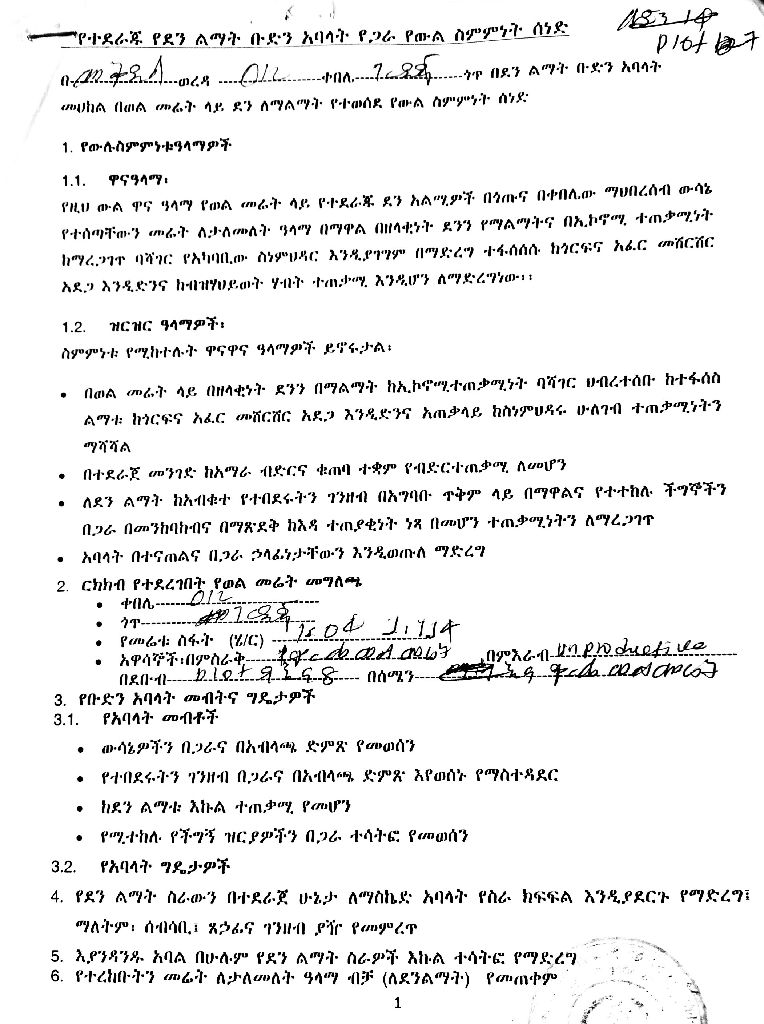 የተደራጁ የደን ልማት ቡድን አባላት የጋራ የውል ስምምነት ሰነድ
Plot
በ ወረዳ 012 ቀበሌ ጎጥ በደን ልማት ቡድን አባላት
መሀከል በወል መሬት ላይ ደን ለማልማት የተወሰደ የውል ስምምነት ሰነድ
1. የውሉስምምነቱዓላማዎች
1.1. ዋናዓላማ፡
የዚህ ውል ዋና ዓላማ የወል መሬት ላይ የተደራጁ ደን አልሚዎች በጎጡና በቀበሌው ማህበረሰብ ውሳኔ
የተሰጣቸውን መሬት ለታለመለት ዓላማ በማዋል በዘላቂነት ደንን የማልማትና በኢኮኖሚ ተጠቃሚነት
ከማረጋገጥ ባሻገር የአካባቢው ስነምህዳር እንዲያገግም በማድረግ ተፋሰሰሱ ከጎርፍና አፈር መሸርሸር
አደጋ እንዲድንና ከብዝሃህይወት ሃብት ተጠታሚ እንዲሆን ለማድረግነው፡፡
1.2. ዝርዝር ዓላማዎች፡
ስምምነቱ የሚከተሉት ዋናዋና ዓላማዎች ይኖሩታል፡
• በወል መሬት ላይ በዘላቂነት ደንን በማልማት ከኢኮኖሚተጠቃሚነት ባሻገር ህብረተሰቡ ከተፋሰስ
ልማቱ ከጎርፍና አፈር መሸርሸር አደጋ እንዲድንና አጠቃላይ ከስነምህዳሩ ሁለገብ ተጠቃሚነትን
ማሻሻል
• በተደራጀ መንገድ ከአማራ ብድርና ቁጠባ ተቋም የብድርተጠቃሚ ለመሆን
• ለደን ልማት ከአብቁተ የተበደሩትን ገንዘብ በአግባቡ ጥቅም ላይ በማዋልና የተተከሉ ችግኞችን
በጋራ በመንከባከብና በማጽደቅ ከእዳ ተጠያቂነት ነጻ በመሆን ተጠቃሚነትን ለማረጋገጥ
• አባላት በተናጠልና በጋራ ኃላፊነታቸውን እንዲወጡለ ማድረግ
2. ርክክብ የተደረገበት የወል መሬት መግለጫ
• ቀበሌ 012
• ጎጥ
• የመሬቱ ስፋት (ሄ/ር)
• አዋሳኞች፡በምስራቅ በምእራብ unproductive
በደቡብ Plot በሰሜን
3. የቡድን አባላት መብትና ግዴታዎች
3.1. የአባላት መብቶች
• ውሳኔዎችን በጋራና በአብላጫ ድምጽ የመወሰን
• የተበደሩትን ገንዘብ በጋራና በአብላጫ ድምጽ እየወሰኑ የማስተዳደር
• ከደን ልማቱ እኩል ተጠቃሚ የመሆን
• የሚተከሉ የችግኝ ዝርያዎችን በጋራ ተሳትፎ የመወሰን
3.2. የአባላት ግዴታዎች
4. የደን ልማት ስራውን በተደራጀ ሁኔታ ለማስኬድ አባላት የስራ ክፍፍል እንዲያደርጉ የማድረግ፤
ማለትም፡ ሰብሳቢ፤ ጸኃፊና ገንዘብ ያዥ የመምረጥ
5. እያንዳንዱ አባል በሁሉም የደን ልማት ስራዎች እኩል ተሳትፎ የማድረግ
6. የተረከቡትን መሬት ለታለመለት ዓላማ ብቻ (ለደንልማት) የመጠቀም
1